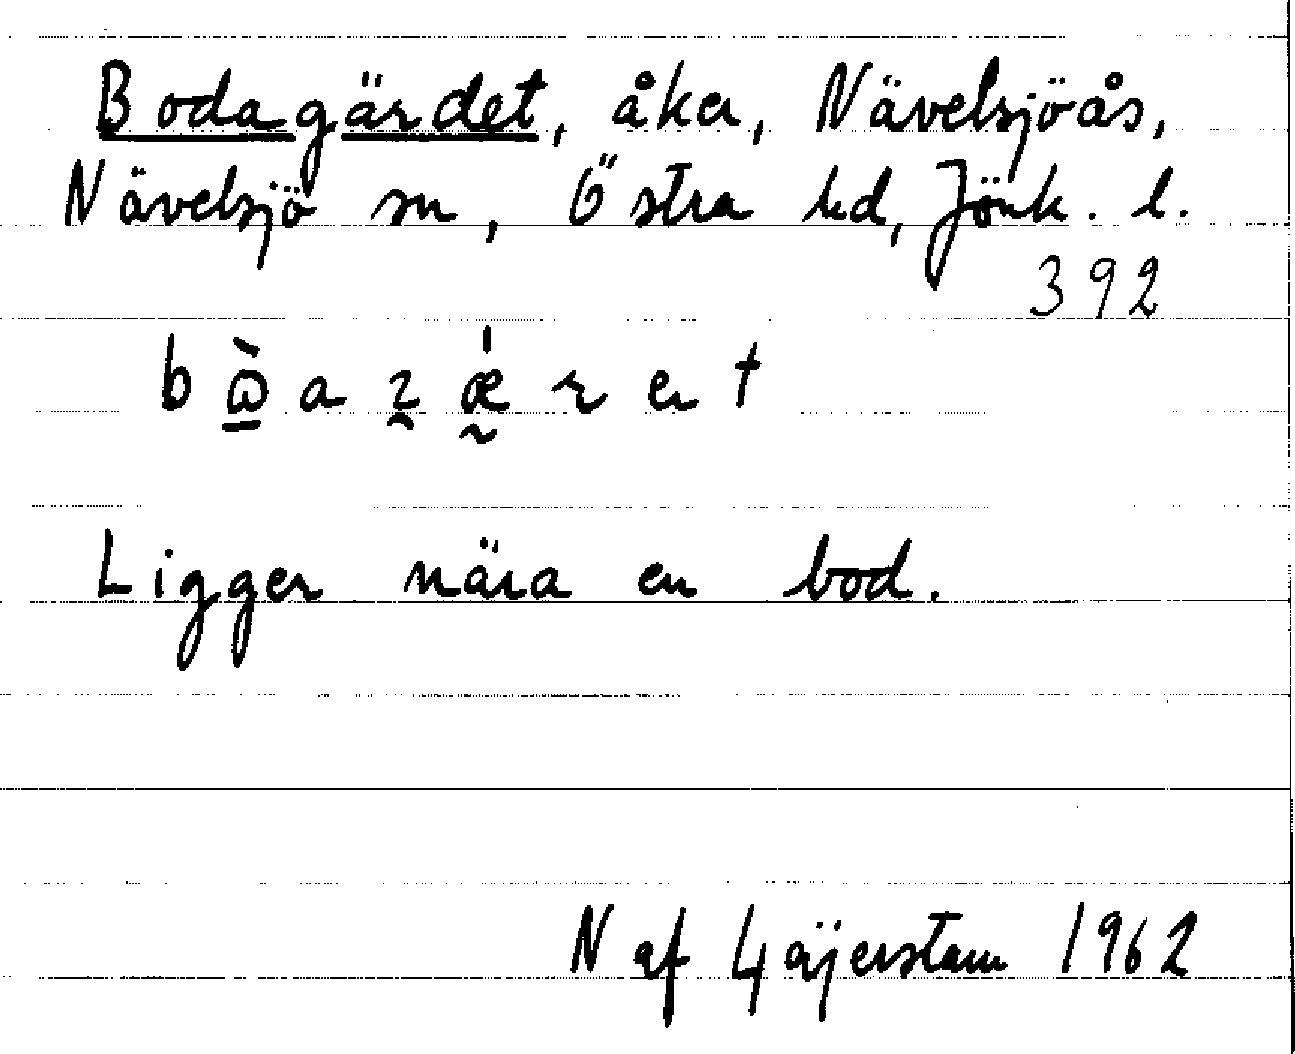 Bodagärdet, åker, Nävelsjöås,
Nävelsjö sn, Östra hd, Jönk. l.
392
Ligger nära en bod.
N af Gäijerstam 1962